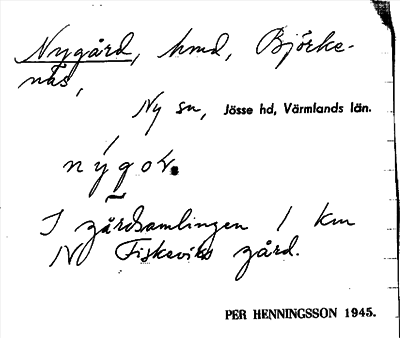 Nygård, hmd, Björke-
näs,
Ny sn, Jösse hd, Värmlands län.
I gårdsamlingen 1 km
N Fiskeviks gård.
PER HENNINGSSON 1945.